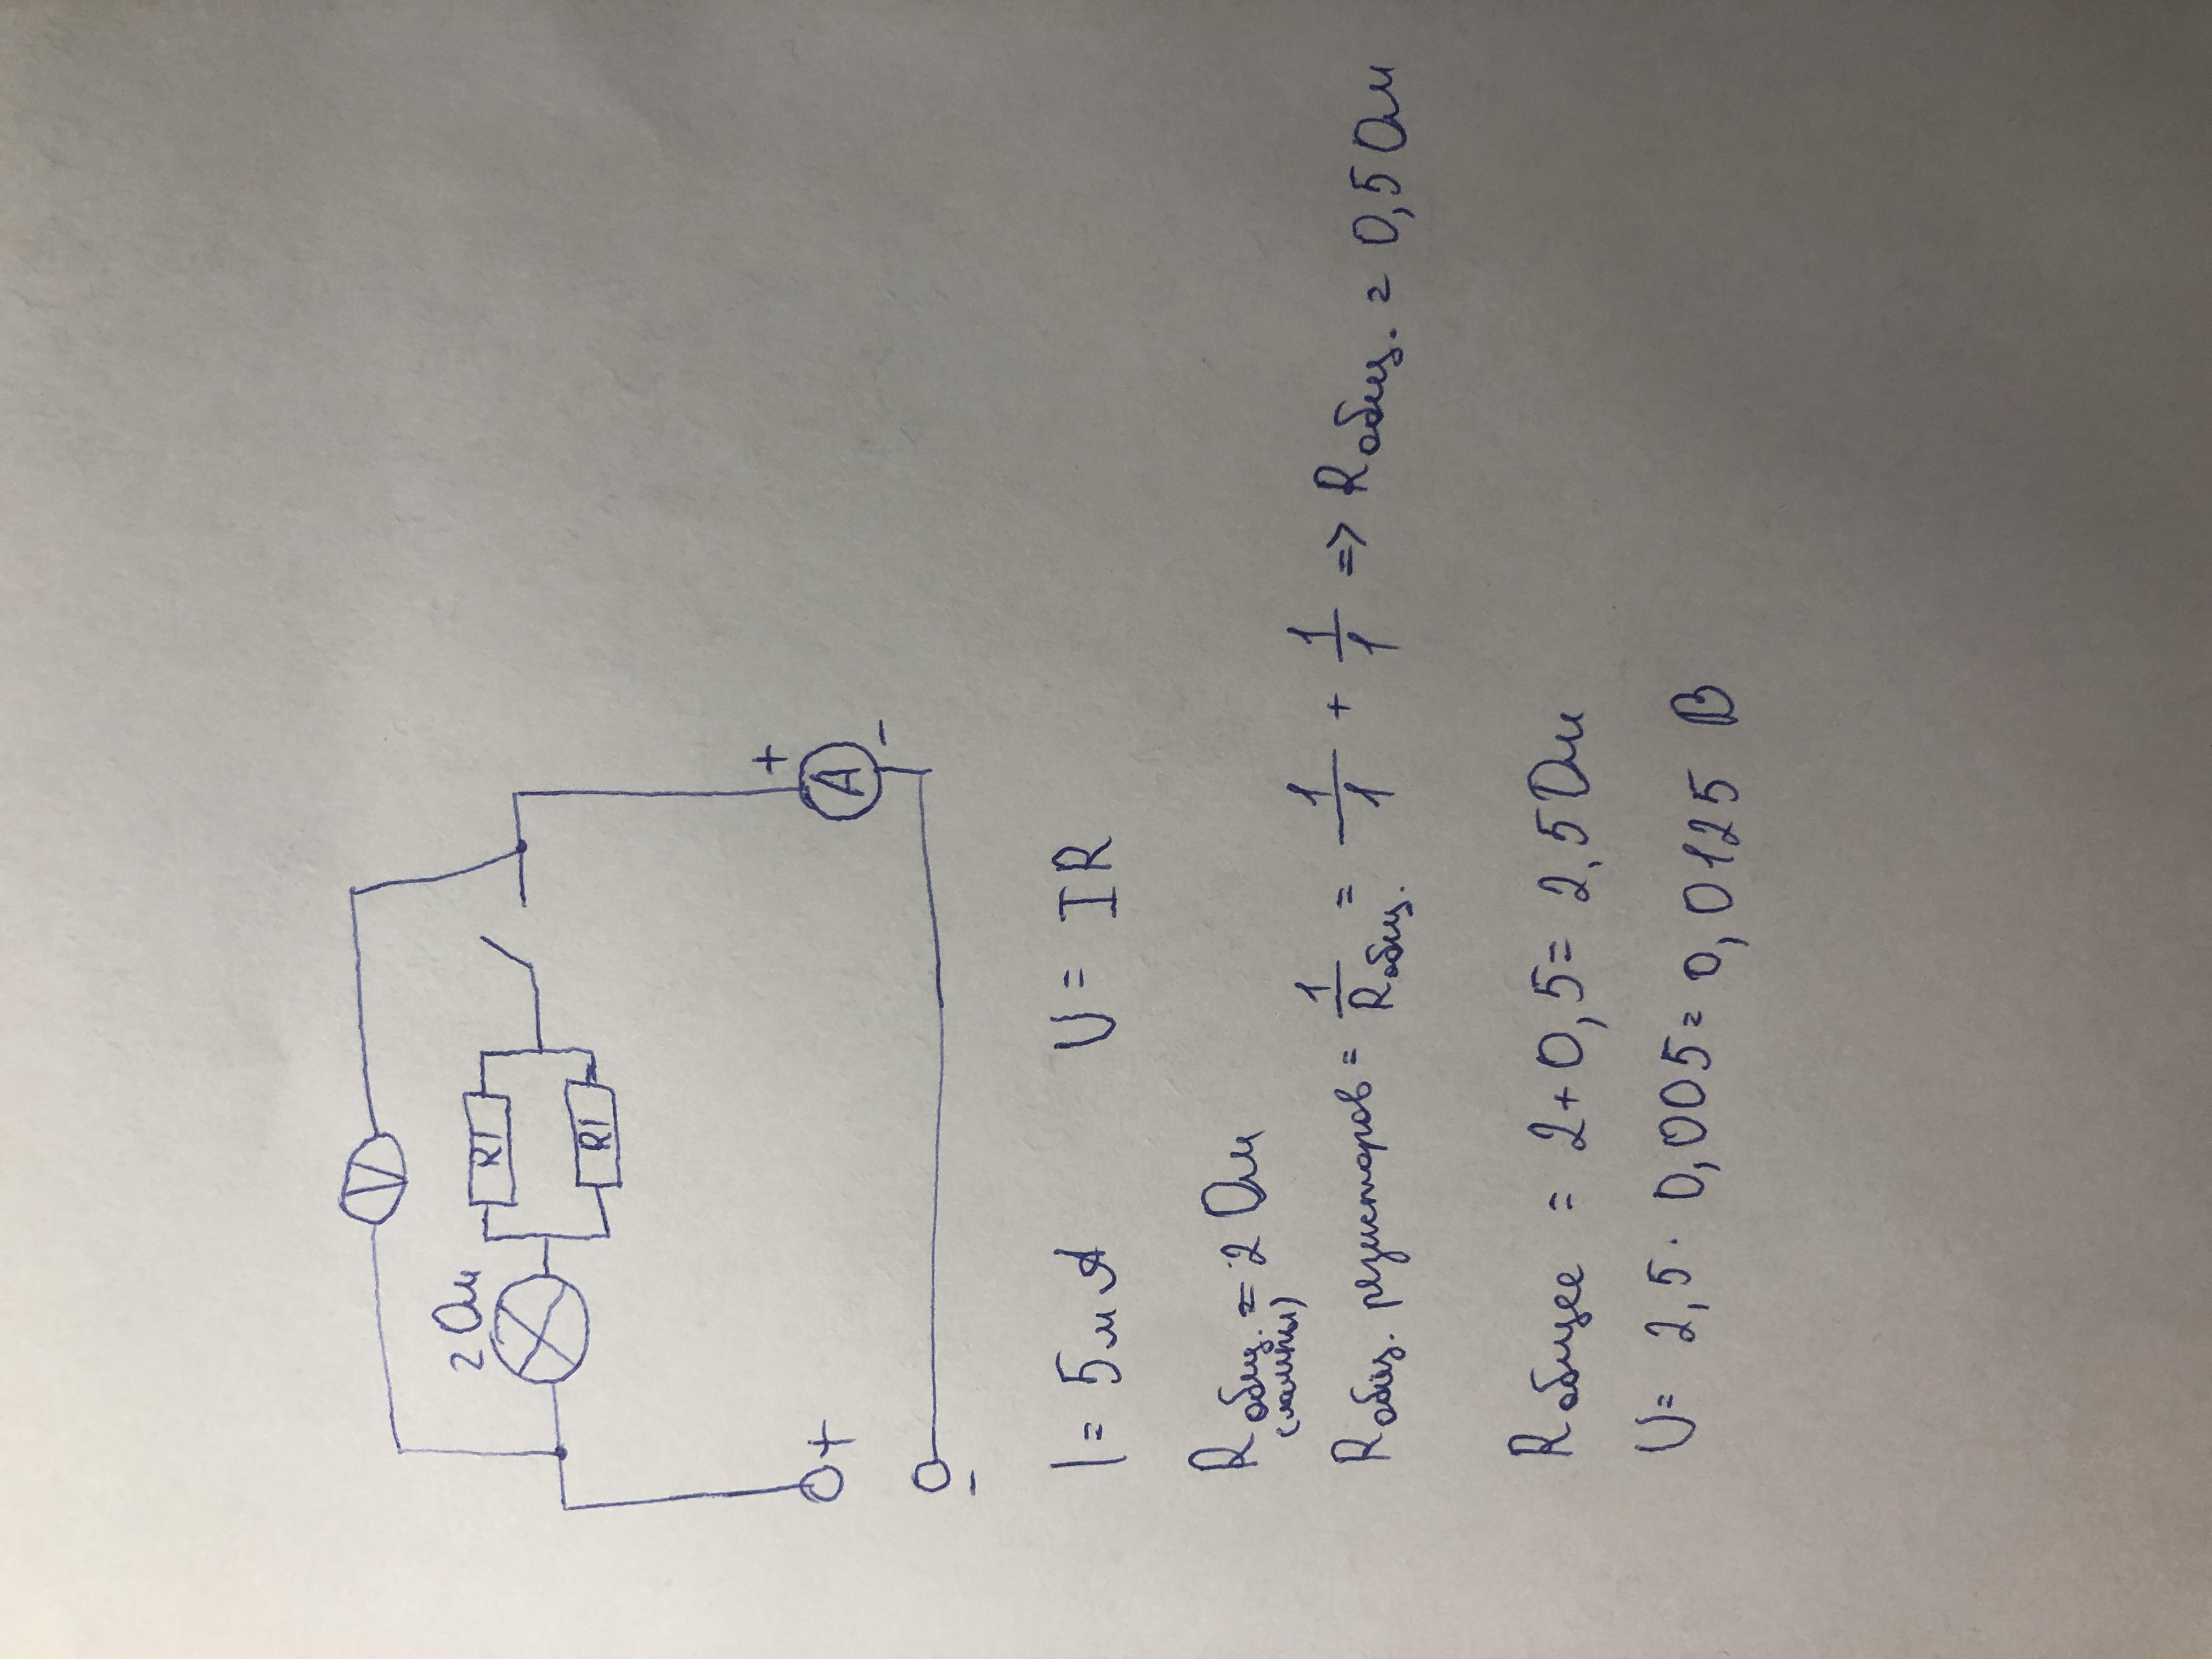 V
2 Ом
R1
R1
+
-
A
+
-
I = 5 мА U = IR
R общ. = 2 Ом
(лампы)
R общ. резисторов = 1/R общ. = 1/1 + 1/1 => R общ. = 0,5 Ом
R общее = 2 + 0,5 = 2,5 Ом
U = 2,5 · 0,005 = 0,0125 В